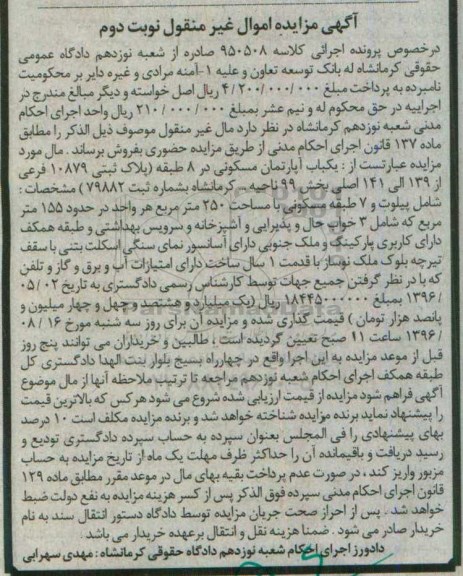 آگهی مزایده اموال غیر منقول نوبت دوم
درخصوص پرونده اجرائی کلاسه ۹۵۰۵۰۸ صادره از شعبه نوزدهم دادگاه عمومی
حقوقی کرمانشاه له بانک توسعه تعاون و علیه ۱-آمنه مرادی و غیره دایر بر محکومیت
نامبرده به پرداخت مبلغ ۴/۲۰۰/۰۰۰/۰۰۰ ریال اصل خواسته و دیگر مبالغ مندرج در
اجراییه در حق محکوم له و نیم عشر بمبلغ ۲۱۰/۰۰۰/۰۰۰ ریال واحد اجرای احکام
مدنی شعبه نوزدهم کرمانشاه در نظر دارد مال غیر منقول موصوف ذیل الذکر را مطابق
ماده ۱۳۷ قانون اجرای احکام مدنی از طریق مزایده حضوری بفروش برساند . مال مورد
مزایده عبارتست از : یکباب آپارتمان مسکونی در ۸ طبقه (پلاک ثبتی ۱۰۸۷۹ فرعی
از ۱۳۹ الی ۱۴۱ اصلی بخش ۹۹ ناحیه - کرمانشاه بشماره ثبت ۷۹۸۸۲ ) مشخصات :
شامل پیلوت و ۷ طبقه مسکونی با مساحت ۲۵۰ متر مربع هر واحد در حدود ۱۵۵ متر
مربع که شامل ۳ خواب حال و پذیرایی و آشپزخانه و سرویس بهداشتی و طبقه همکف
دارای کاربری پارکینگ و ملک جنوبی دارای آسانسور نمای سنگی اسکلت بتنی با سقف
تیرچه بلوک ملک نوساز با قدمت ۱ سال ساخت دارای امتیازات آب و برق و گاز و تلفن
که با در نظر گرفتن جمیع جهات توسط کارشناس رسمی دادگستری به تاریخ ۰۵/۰۲
/۱۳۹۶ بمبلغ ۱۸۴۴۵۰۰۰۰۰۰ ریال (یک میلیارد و هشتصد و چهل و چهار میلیون و
پانصد هزار تومان ) قیمت گذاری شده و مزایده آن برای روز سه شنبه مورخ ۰۸/۱۶
/۱۳۹۶ ساعت ۱۱ صبح تعیین گردیده است ، طالبین و خریداران می توانند پنج روز
قبل از موعد مزایده به این اجرا واقع در چهارراه بسیج بلوار بنت الهدا دادگستری کل
طبقه همکف اجرای احکام شعبه نوزدهم مراجعه تا ترتیب ملاحظه آنها از مال موضوع
آگهی فراهم شود مزایده از قیمت ارزیابی شده شروع می شود هرکس که بالاترین قیمت
را پیشنهاد نماید برنده مزایده شناخته خواهد شد و برنده مزایده مکلف است ۱۰ درصد
بهای پیشنهادی را فی المجلس بعنوان سپرده به حساب سپرده دادگستری تودیع و
رسید دریافت و باقیمانده آن را حداکثر ظرف مهلت یک ماه از تاریخ مزایده به حساب
مزبور واریز کند ، در صورت عدم پرداخت بقیه بهای مال در موعد مقرر مطابق ماده ۱۲۹
قانون اجرای احکام مدنی سپرده فوق الذکر پس از کسر هزینه مزایده به نفع دولت ضبط
خواهد شد . پس از احراز صحت جریان مزایده توسط دادگاه دستور انتقال سند به نام
خریدار صادر می شود . ضمنا هزینه نقل و انتقال برعهده خریدار می باشد .
دادورز اجرای احکام شعبه نوزدهم دادگاه حقوقی کرمانشاه : مهدی سهرابی